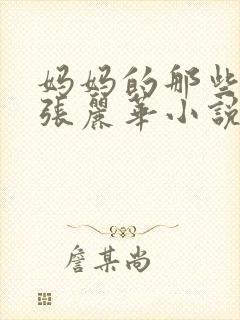 妈妈的那些
张麗华小說
詹某尚